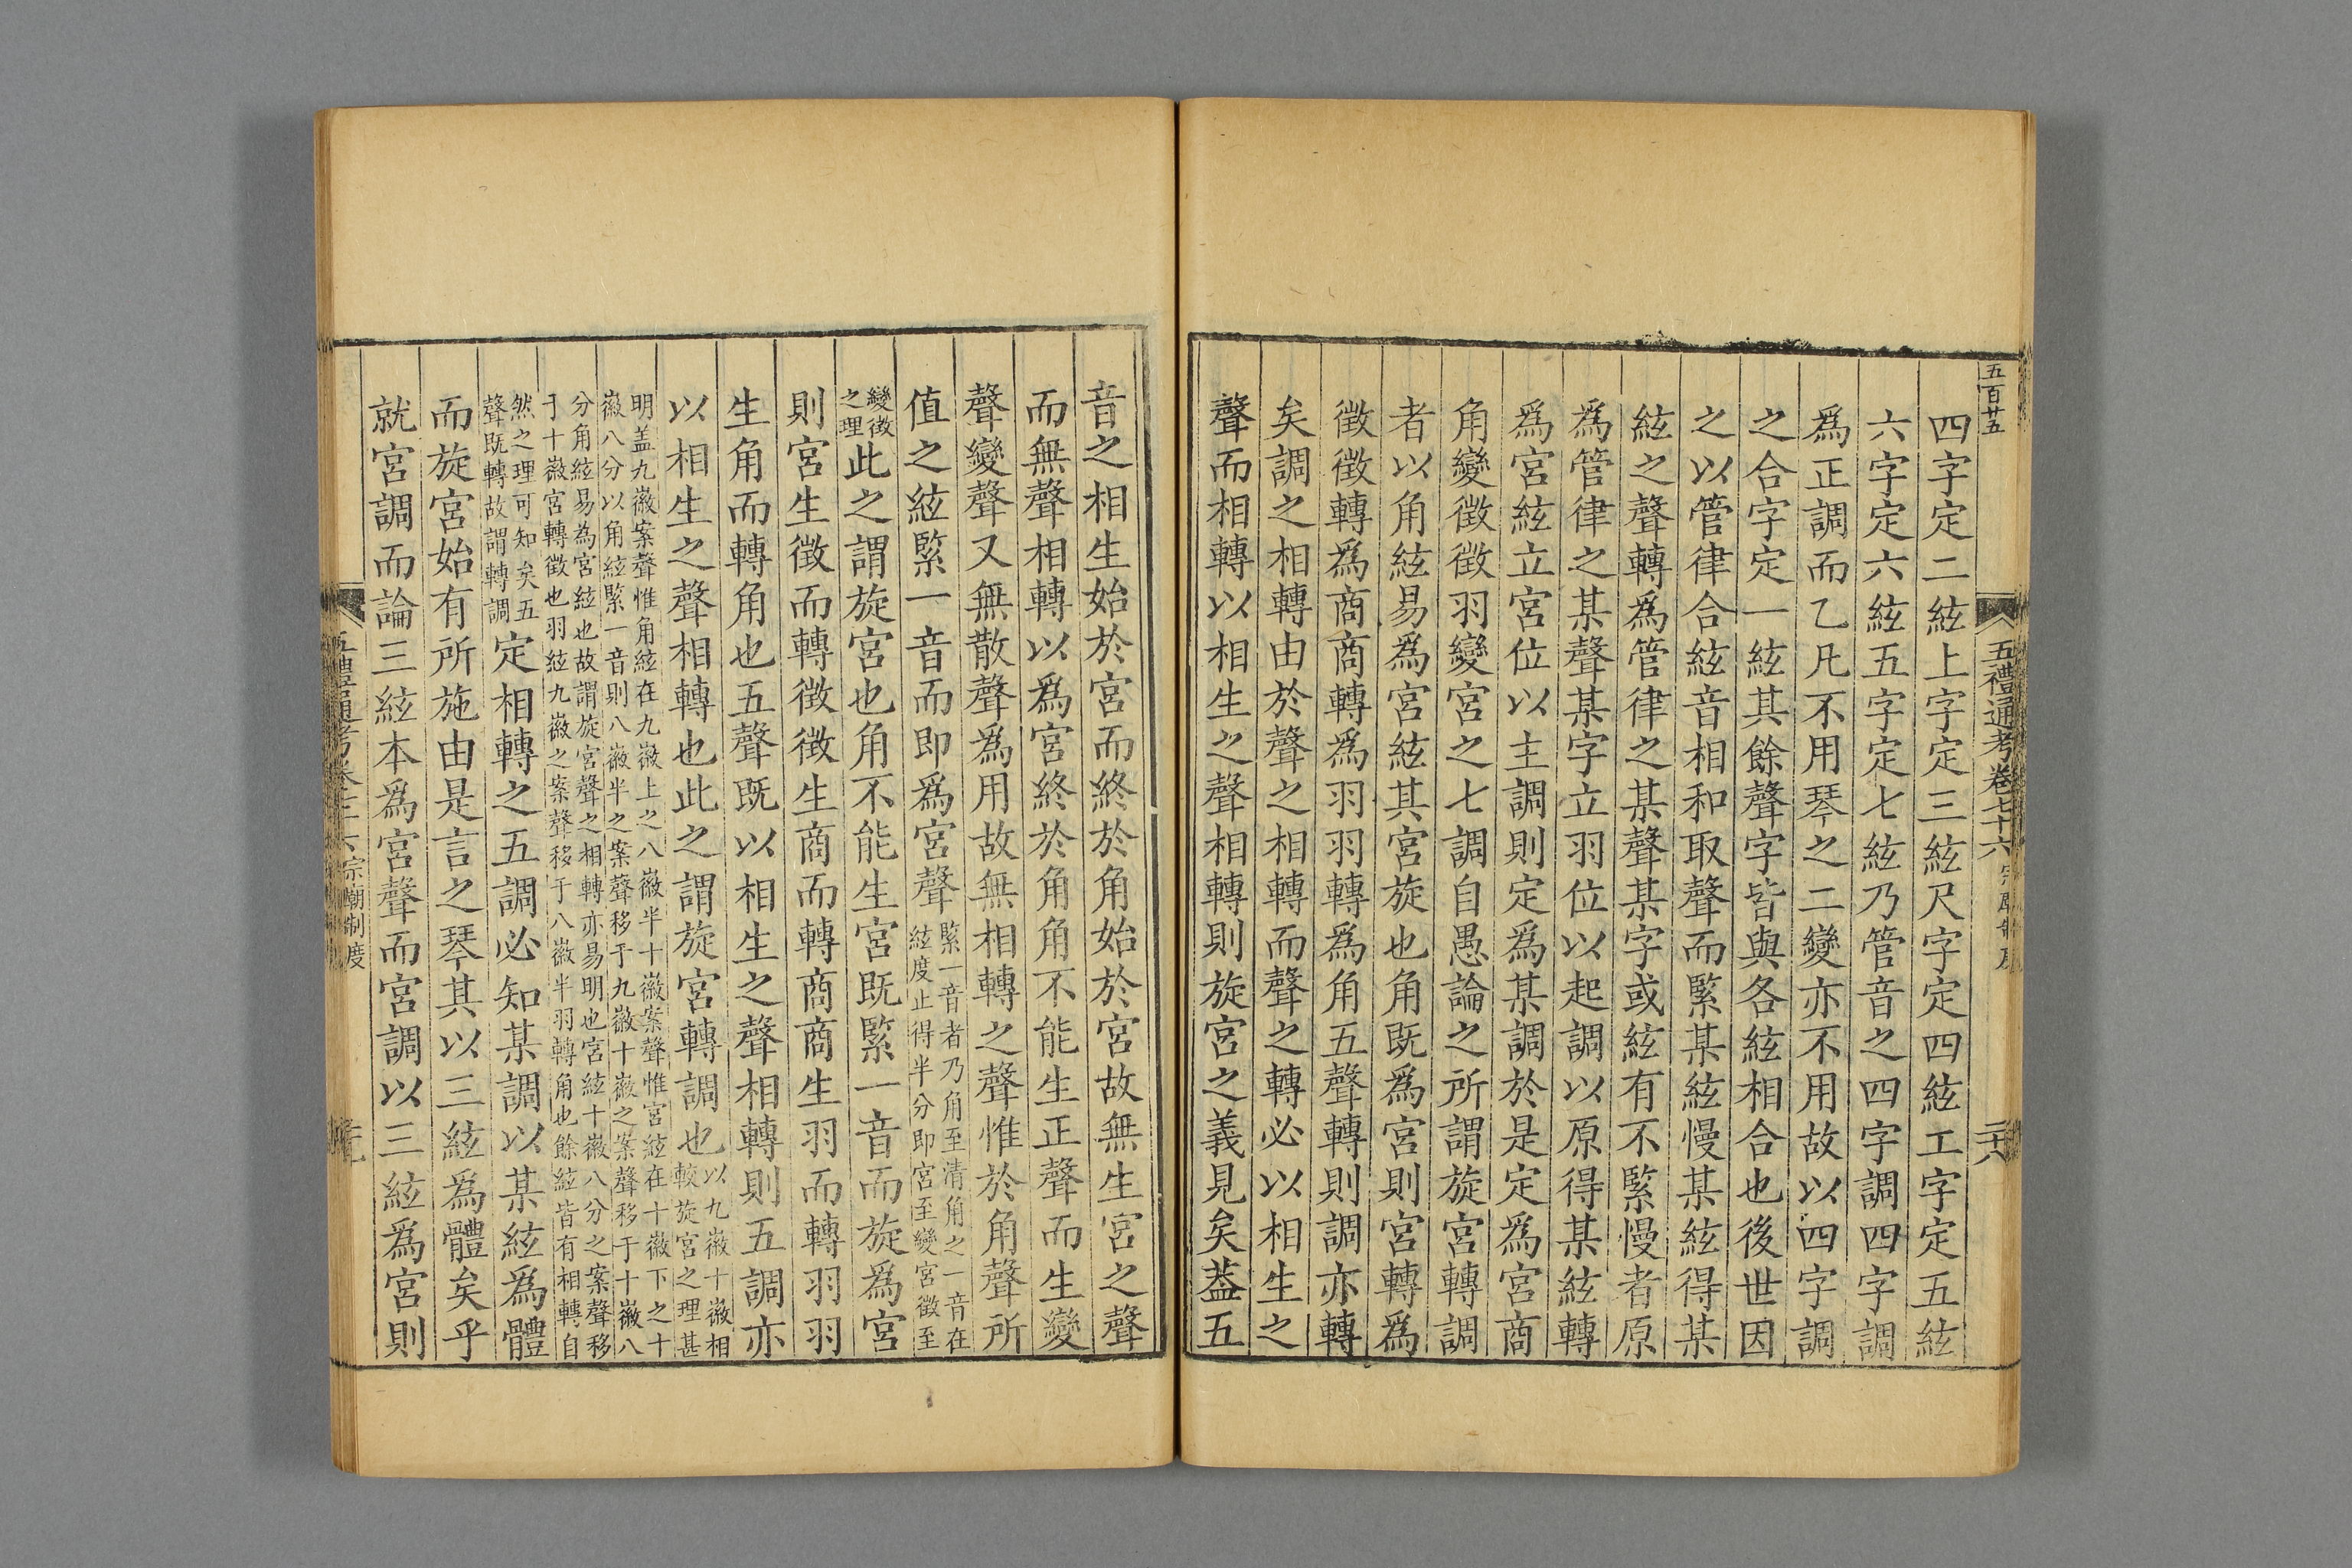 五百廿五
五禮通考卷七十六
六
四字定二絃上字定三絃尺字定四絃工字定五絃
六字定六絃五字定七絃乃管音之四字調四字調
爲正調而乙凡不用琴之二變亦不用故以四字調
之合字定一絃其餘聲字皆與各絃相合也後世因
之以管律合絃音相和取聲而緊某絃慢某絃得某
絃之聲轉爲管律之某聲某字或絃有不緊慢者原
爲管律之某聲某字立羽位以起調以原得某絃轉
爲宮絃立宮位以主調則定爲某調於是定爲宮商
角變徵徵羽變宮之七調自愚論之所謂旋宮轉調
者以角絃易爲宮絃其宮旋也角既爲宮則宮轉爲
徵徵轉爲商商轉爲羽羽轉爲角五聲轉則調亦轉
矣調之相轉由於聲之相轉而聲之轉必以相生之
聲而相轉以相生之聲相轉則旋宮之義見矣葢五
音之相生始於宮而終於角始於宮故無生宮之聲
而無聲相轉以爲宮終於角角不能生正聲而生變
聲變聲又無散聲爲用故無相轉之聲惟於角聲所
值之絃緊一音而即爲宮聲緊一音者乃角至清角之一音在
絃度止得半分即宮至變宮徵至
變徵
之理此之謂旋宮也角不能生宮既緊一音而旋爲宮
則宮生徵而轉徵徵生商而轉商商生羽而轉羽羽
生角而轉角也五聲既以相生之聲相轉則五調亦
以相生之聲相轉也此之謂旋宮轉調也以九徽十徽相
較旋宮之理甚
明盖九徽案聲惟角絃在九徽上之八徽半十徽案聲惟宮絃在十徽下之十
徽八分以角絃緊一音則八徽半之案聲移于九徽十徽之案聲移于十徽八
分角絃易為宮絃也故謂旋宮聲之相轉亦易明也宮絃十徽八分之案聲移
于十徽宮轉徵也羽絃九徽之案聲移于八徽半羽轉角也餘絃皆有相轉自
然之理可知矣五
聲既轉故謂轉調定相轉之五調必知某調以某絃爲體
而旋宮始有所施由是言之琴其以三絃爲體矣乎
就宮調而論三絃本爲宮聲而宮調以三絃爲宮則
五禮通考卷七十六 宗廟制度